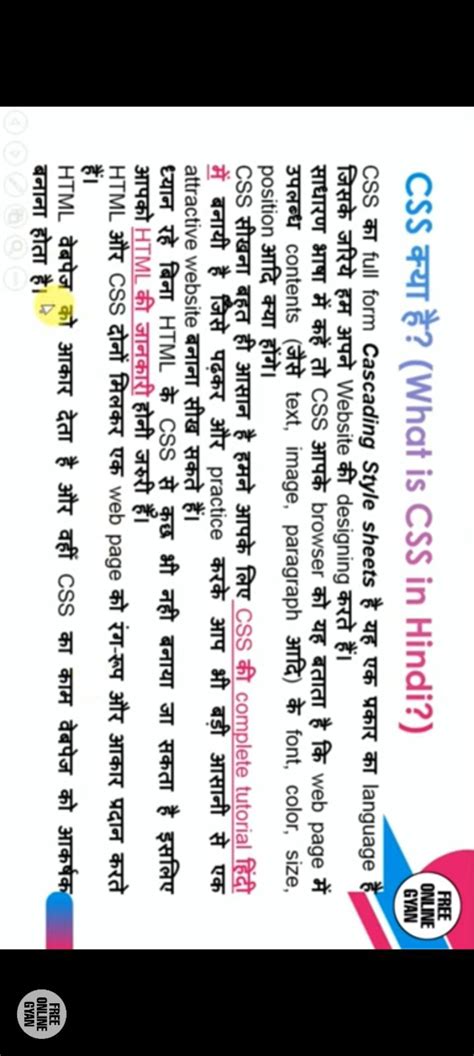 CSS क्या है? (What is CSS in Hindi?)
CSS का full form Cascading Style sheets है यह एक प्रकार का language है
जिसके जरिये हम अपने Website की designing करते हैं।
साधारण भाषा में कहें तो CSS आपके browser को यह बताता है कि web page में
उपलब्ध contents (जैसे text, image, paragraph आदि) के font, color, size,
position आदि क्या होंगे।
CSS सीखना बहुत ही आसान है हमने आपके लिए CSS की complete tutorial हिंदी
में बनायी है जिसे पढ़कर और practice करके आप भी बड़ी आसानी से एक
attractive website बनाना सीख सकते हैं।
ध्यान रहे बिना HTML के CSS से कुछ भी नही बनाया जा सकता है इसलिए
आपको HTML की जानकारी होनी जरुरी हैं।
HTML और CSS दोनों मिलकर एक web page को रंग-रूप और आकार प्रदान करते
हैं।
HTML वेबपेज को आकार देता है और वहीं CSS का काम वेबपेज को आकर्षक
बनाना होता है।
FREE
ONLINE
GYAN
FREE
ONLINE
GYAN